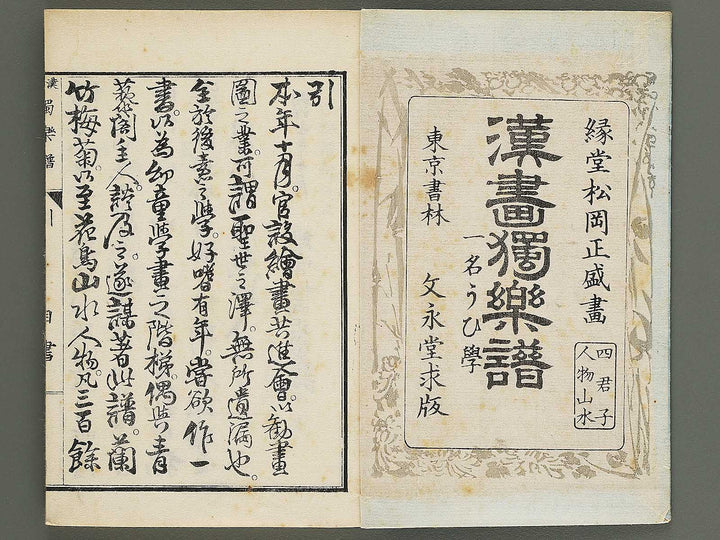 緑堂松岡正盛畫
四君子
人物山水
漢畫獨樂譜
一名うひ學
東京書林
文永堂求版
引
本年十月。官設繪畫共進會。以勸畫
圖之業。可謂聖世之澤。無所遺漏也。
余於後素之學。好嗜有年。嘗欲作一
書。以為幼童學畫之階梯。偶与青
藜閣主人談及之。遂謀著此譜。蘭
竹梅菊。以至花鳥山水人物。凡三百餘
漢獨樂譜
引